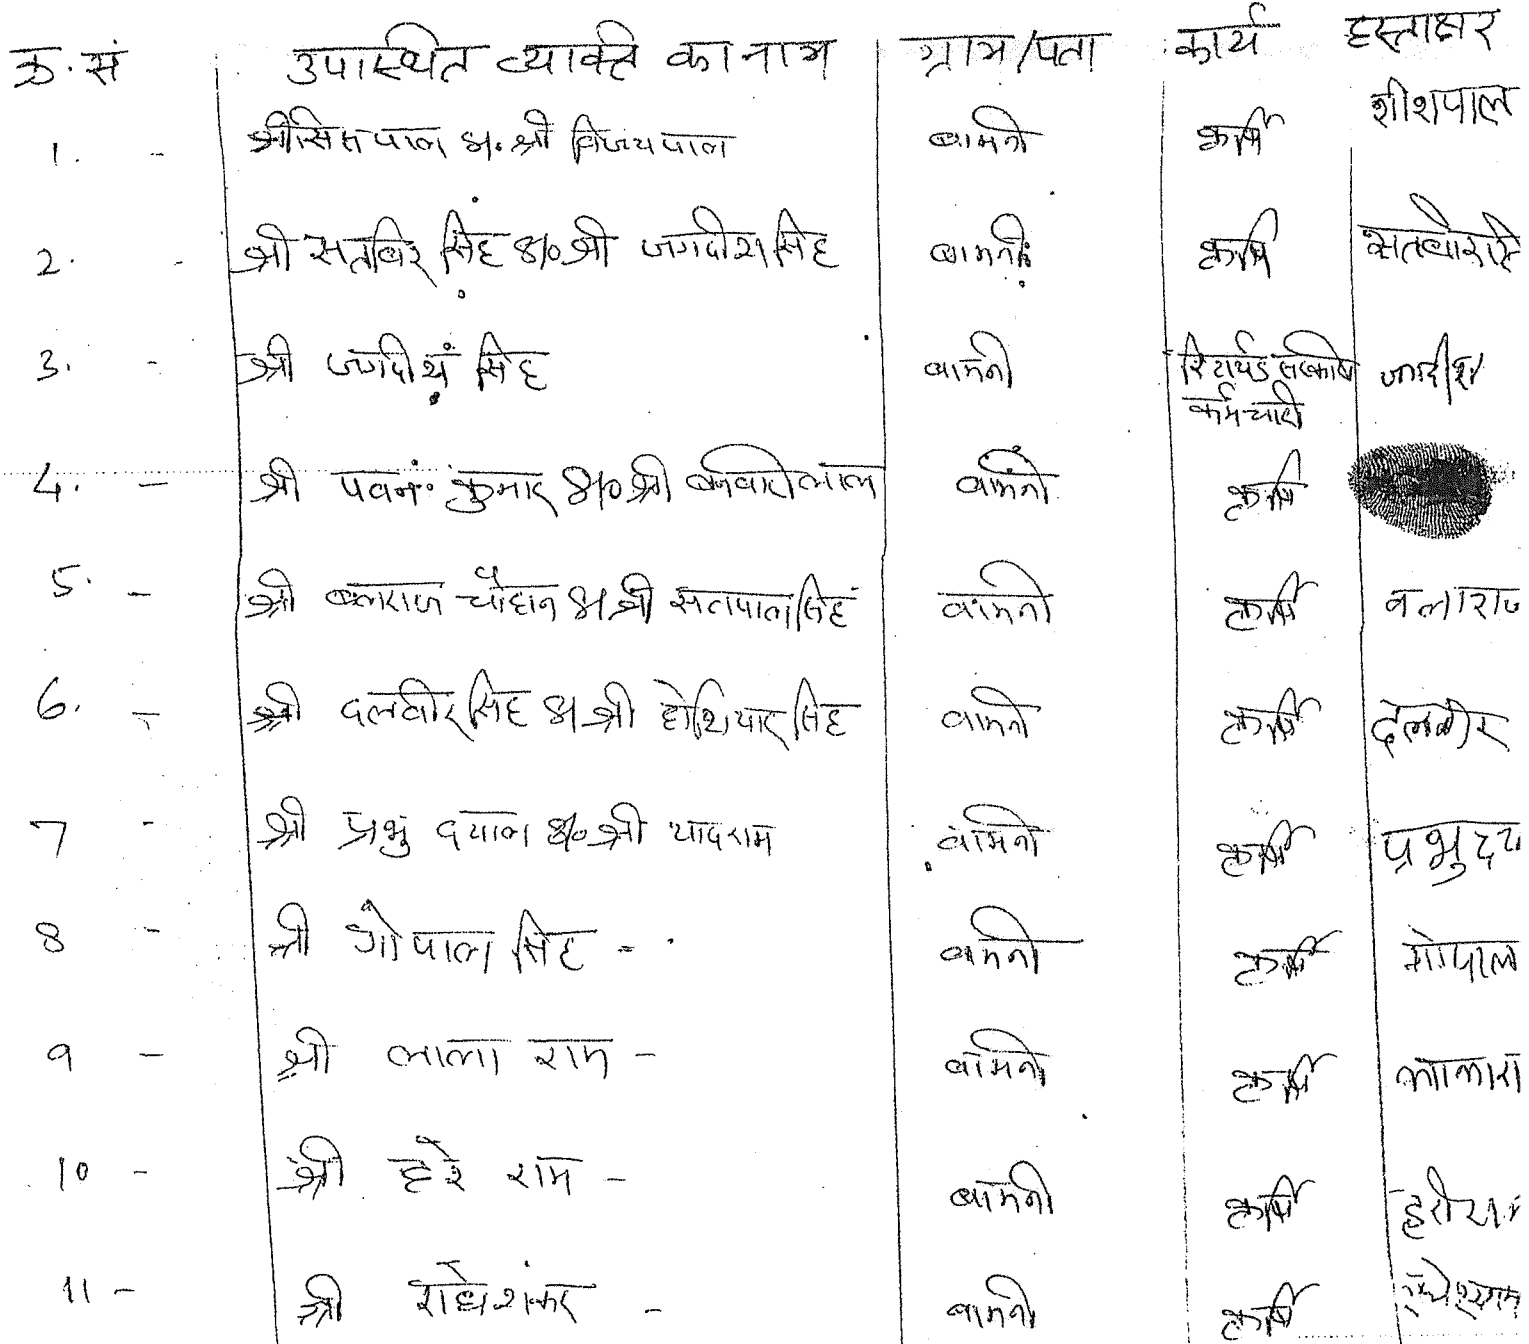 क्र. सं उपास्थित व्याक्ति का नाम ग्राम/पता कार्य हस्ताक्षर
1. - श्री सिसपाल S/० श्री विजयपाल बामनी कर्षि शीशपाल
2. - श्री सतबिर सिंह S/० श्री जगदीश सिंह बामनी कर्षि
3. - श्री जगदीश सिंह बामनी रिटार्यड सरकारी जगदीश
कर्मचारी
4. - श्री पवन कुमार S/० श्री बनवारी लाल बामनी कर्षि
5. - श्री बलराज चौहान S/ श्री सतपाल सिंह बामनी कर्षि बलाराज
6. - श्री दलवीर सिंह S/ श्री होशियार सिंह बामनी कर्षि दलबीर
7 - श्री प्रभु दयाल S/० श्री यादराम बामनी कर्षि प्रभु दया
8 - श्री गोपाल सिंह - बामनी कर्षि गोपाल
9 - श्री लाला राम - बामनी कर्षि लालारा
10 - श्री हरे राम - बामनी कर्षि हरी राम
11 - श्री राधेशंकर - बामनी कर्षि